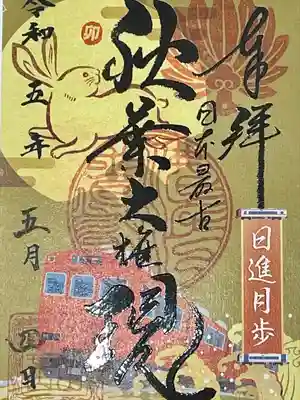 奉拝
日本最古
秋葉大権現
令和五年
五月四日
卯
日進月歩